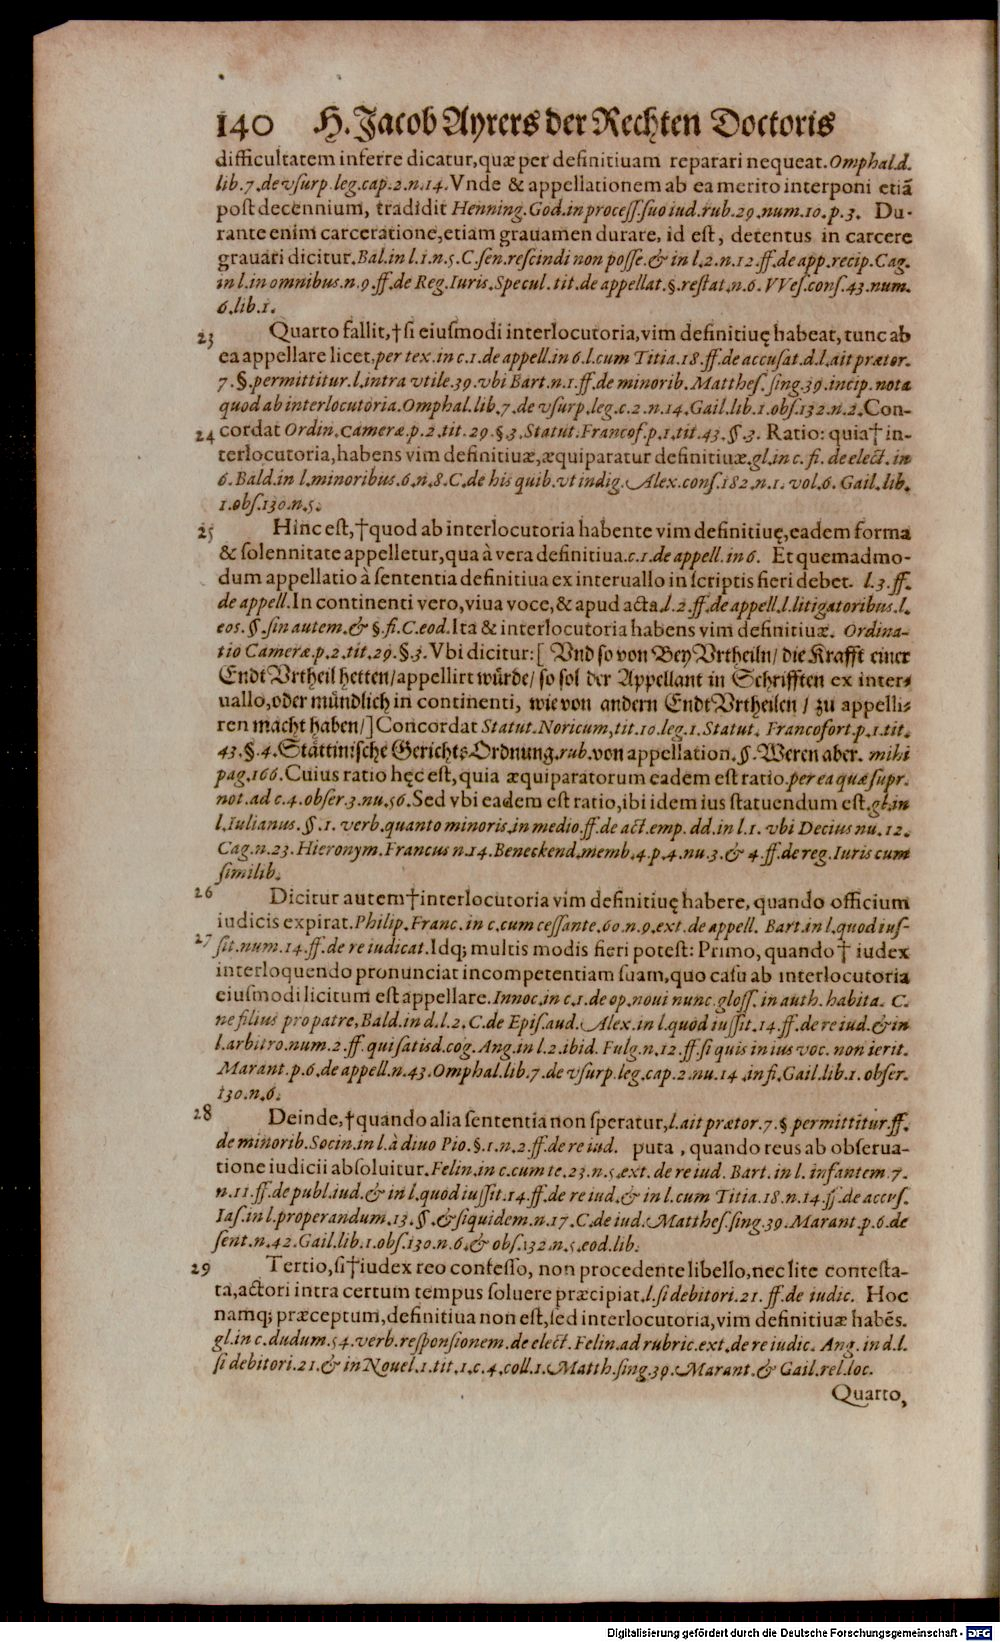 140 H. Jacob Ayrers der Rechten Doctoris
difficultatem inferre dicatur, quæ per definitiuam reparari nequeat. Omphal. d.
lib. 7. de vsurp. leg. cap. 2. n. 14. Vnde & appellationem ab ea merito interponi etiã
post decennium, tradidit Henning. God. in process. suo iud. rub. 29. num. 10. p. 3. Du-
rante enim carceratione, etiam grauamen durare, id est, detentus in carcere
grauari dicitur. Bal. in l. 1. n. 5. C. sen. rescindi non posse. & in l. 2. n. 12. ff. de app. recip. Cag.
in l. in omnibus. n. 9. ff. de Reg. Iuris. Specul. tit. de appellat. §. restat. n. 6. VVes. cons. 43. num.
6. lib. 1.
23 Quarto fallit, † si eiusmodi interlocutoria, vim definitiuę habeat, tunc ab
ea appellare licet, per tex. in c. 1. de appell. in 6. l. cum Titia. 18. ff. de accusat. d. l. ait prætor.
7. §. permittitur. l. intra vtile. 39. vbi Bart. n. 1. ff. de minorib. Matthes. sing. 39. incip. nota
quod ab interlocutoria. Omphal. lib. 7. de vsurp. leg. c. 2. n. 14. Gail. lib. 1. obs. 132. n. 2. Con-
24 cordat Ordin. Cameræ. p. 2. tit. 29. §. 3. Statut. Francof. p. 1. tit. 43. §. 3. Ratio: quia † in-
terlocutoria, habens vim definitiuæ, æquiparatur definitiuæ. gl. in c. fi. de elect. in
6. Bald. in l. minoribus. 6. n. 8. C. de his quib. vt indig. Alex. cons. 182. n. 1. vol. 6. Gail. lib.
1. obs. 130. n. 5.
25 Hinc est, † quod ab interlocutoria habente vim definitiuę, eadem forma
& solennitate appelletur, qua à vera definitiua. c. 1. de appell. in 6. Et quemadmo-
dum appellatio à sententia definitiua ex interuallo in scriptis fieri debet. l. 3. ff.
de appell. In continenti vero, viua voce, & apud acta, l. 2. ff. de appell. l. litigatoribus. l.
eos. §. sin autem. & §. fi. C. eod. Ita & interlocutoria habens vim definitiuæ. Ordina-
tio Cameræ. p. 2. tit. 29. §. 3. Vbi dicitur: [ Vnd so von Bey Vrtheiln / die Krafft einer
Endt Vrtheil hetten / appellirt würde / so sol der Appellant in Schrifften ex inter-
uallo, oder mündlich in continenti, wie von andern Endt Vrtheilen / zu appelli-
ren macht haben / ] Concordat Statut. Noricum, tit. 10. leg. 1. Statut. Francofort. p. 1. tit.
43. §. 4. Stättinische Gerichts Ordnung. rub. von appellation. §. Weren aber. mihi
pag. 166. Cuius ratio hęc est, quia æquiparatorum eadem est ratio. per ea quæ supr.
not. ad c. 4. obser. 3. nu. 56. Sed vbi eadem est ratio, ibi idem ius statuendum est. gl. in
l. Iulianus. §. 1. verb. quanto minoris. in medio. ff. de act. emp. dd. in l. 1. vbi Decius nu. 12.
Cag. n. 23. Hieronym. Francus n. 14. Beneckend. memb. 4. p. 4. nu. 3. & 4. ff. de reg. Iuris cum
similib.
26 Dicitur autem † interlocutoria vim definitiuę habere, quando officium
iudicis expirat. Philip. Franc. in c. cum cessante. 60. n. 9. ext. de appell. Bart. in l. quod ius-
27 sit. num. 14. ff. de re iudicat. Idq; multis modis fieri potest: Primo, quando † iudex
interloquendo pronunciat incompetentiam suam, quo casu ab interlocutoria
eiusmodi licitum est appellare. Innoc. in c. 1. de op. noui nunc. gloss. in auth. habita. C.
ne filius pro patre, Bald. in d. l. 2. C. de Epis. aud. Alex. in l. quod iussit. 14. ff. de re iud. & in
l. arbitro. num. 2. ff. qui satisd. cog. Ang. in l. 2. ibid. Fulg. n. 12. ff. si quis in ius voc. non ierit.
Marant. p. 6. de appell. n. 43. Omphal. lib. 7. de vsurp. leg. cap. 2. nu. 14. in fi. Gail. lib. 1. obser.
130. n. 6.
28 Deinde, † quando alia sententia non speratur, l. ait prætor. 7. § permittitur. ff.
de minorib. Socin. in l. à diuo Pio. §. 1. n. 2. ff. de re iud. puta, quando reus ab obserua-
tione iudicii absoluitur. Felin. in c. cum te. 23. n. 5. ext. de re iud. Bart. in l. infantem. 7.
n. 11. ff. de publ. iud. & in l. quod iussit. 14. ff. de re iud. & in l. cum Titia. 18. n. 14. ff. de accus.
Ias. in l. properandum. 13. §. & siquidem. n. 17. C. de iud. Matthes. sing. 39. Marant. p. 6. de
sent. n. 42. Gail. lib. 1. obs. 130. n. 6. & obs. 132. n. 5. eod. lib.
29 Tertio, si † iudex reo confesso, non procedente libello, nec lite contesta-
ta, actori intra certum tempus soluere præcipiat. l. si debitori. 21. ff. de iudic. Hoc
namq; præceptum, definitiua non est, sed interlocutoria, vim definitiuæ habẽs.
gl. in c. dudum. 54. verb. responsionem. de elect. Felin. ad rubric. ext. de re iudic. Ang. in d. l.
si debitori. 21. & in Nouel. 1. tit. 1. c. 4. coll. 1. Matth. sing. 39. Marant. & Gail. rel. loc.
Quarto,
Digitalisierung gefördert durch die Deutsche Forschungsgemeinschaft - DFG